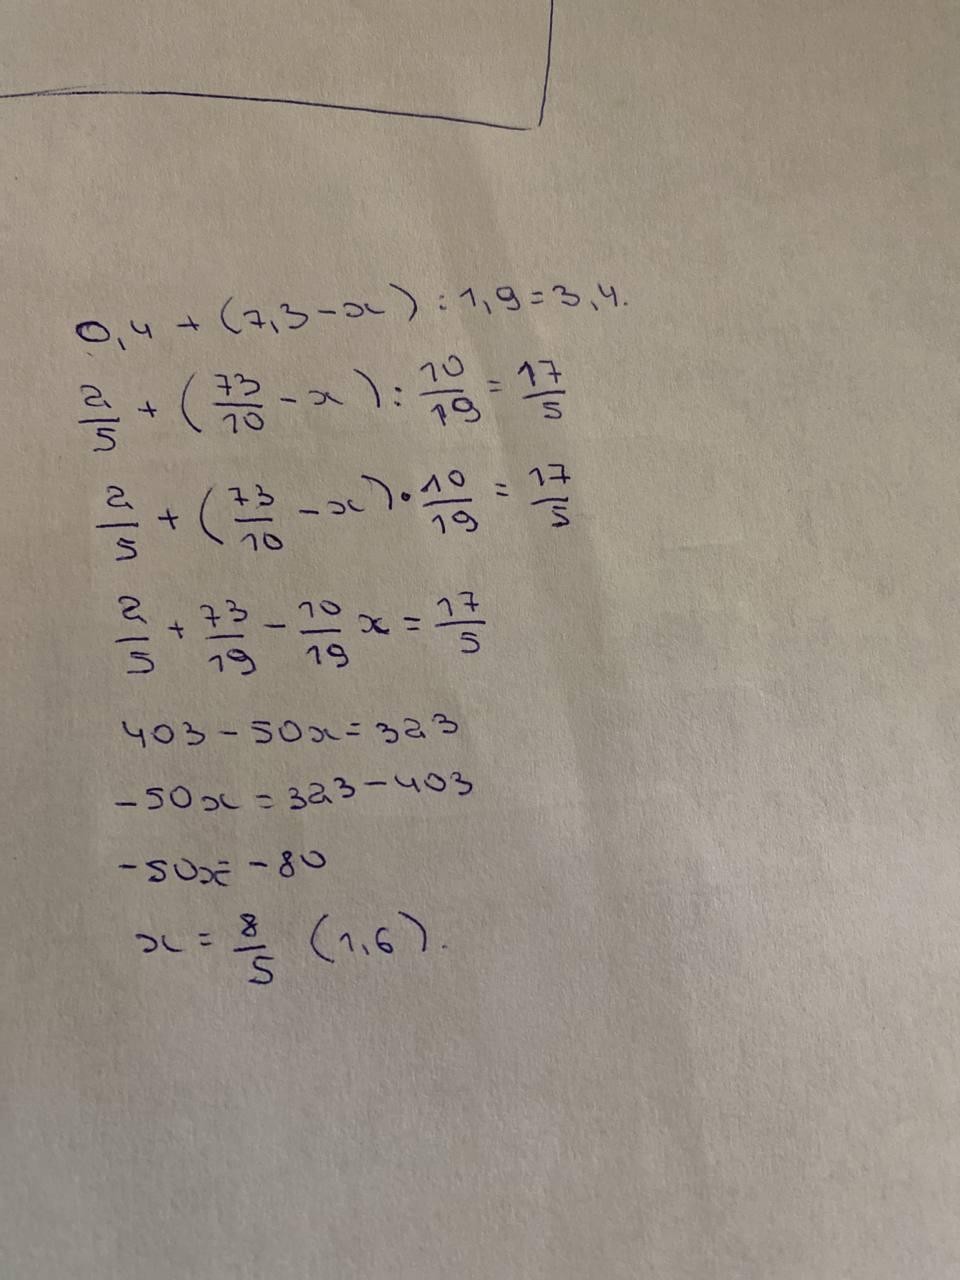 0,4 + (7,3 - x) : 1,9 = 3,4.
2/5 + (73/10 - x) : 10/19 = 17/5
2/5 + (73/10 - x) · 10/19 = 17/5
2/5 + 73/19 - 10/19 x = 17/5
403 - 50x = 323
-50x = 323 - 403
-50x = -80
x = 8/5 (1,6).